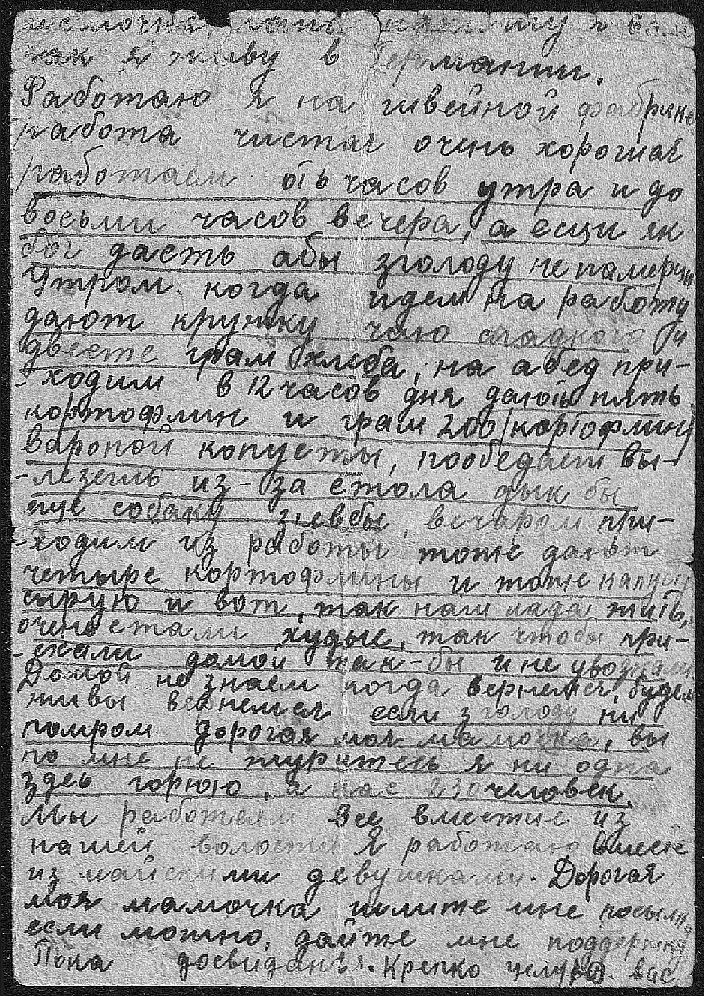 как я живу в Германии.
Работаю я на швейной фабрике
работа чистая очень хорошая
работаем от 6 часов утра и до
восьми часов вечера, а есци як
бог дасть абы зголоду не памерци
Утром когда идем на работу
дают кружку чаю сладкого и
двесте грам хлеба, на абед при-
-ходим в 12 часов дня дають пять
картофлин и грам 200 картофлину
вароной копусты, пообедаеш вы-
-лезешь из-за стола дык бы
собаку зъевбы, вечаром при-
-ходим из работы тоже дають
четыре кортофлины и тоже капусту
сырую и вот, так нам нада жить,
очено стали худые, так чтобы при-
-ехали домой так-бы и не
Домой не знаем когда вернемся, будем
живы вернемся если зголоду ни
помром дорогая моя мамочка, вы
по мне не журитесь я ни одна
здесь горюю, я нас 230 человек.
Мы работаем все вместие из
нашей волости Я работаю
из майскими девушками. Дорогая
моя мамочка шлите мне посылки
если можно, дайте мне поддержку
Пока досвидан. Крепко целую вас